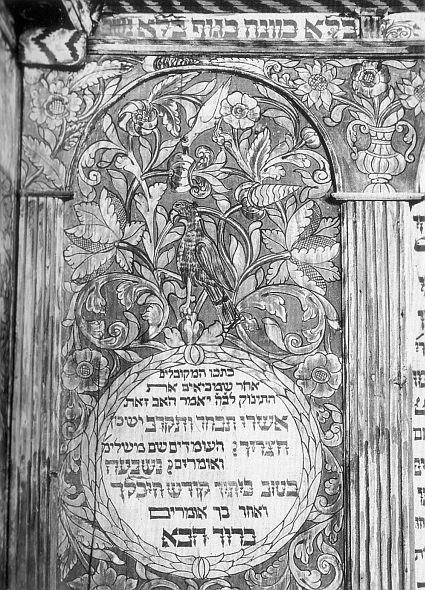 שבלא כוונה כגוף בלא נש
כתבו המקובלים
אחר שמביאים את
התינוק לבה׳ יאמר האב זאת
אשרי תבחר ותקרב ישכן
חצריך: העומדים שם משלימים
ואומרים: נשבעה
בטוב ביתך קדוש היכלך
ואחר כך אומרים
ברוך הבא